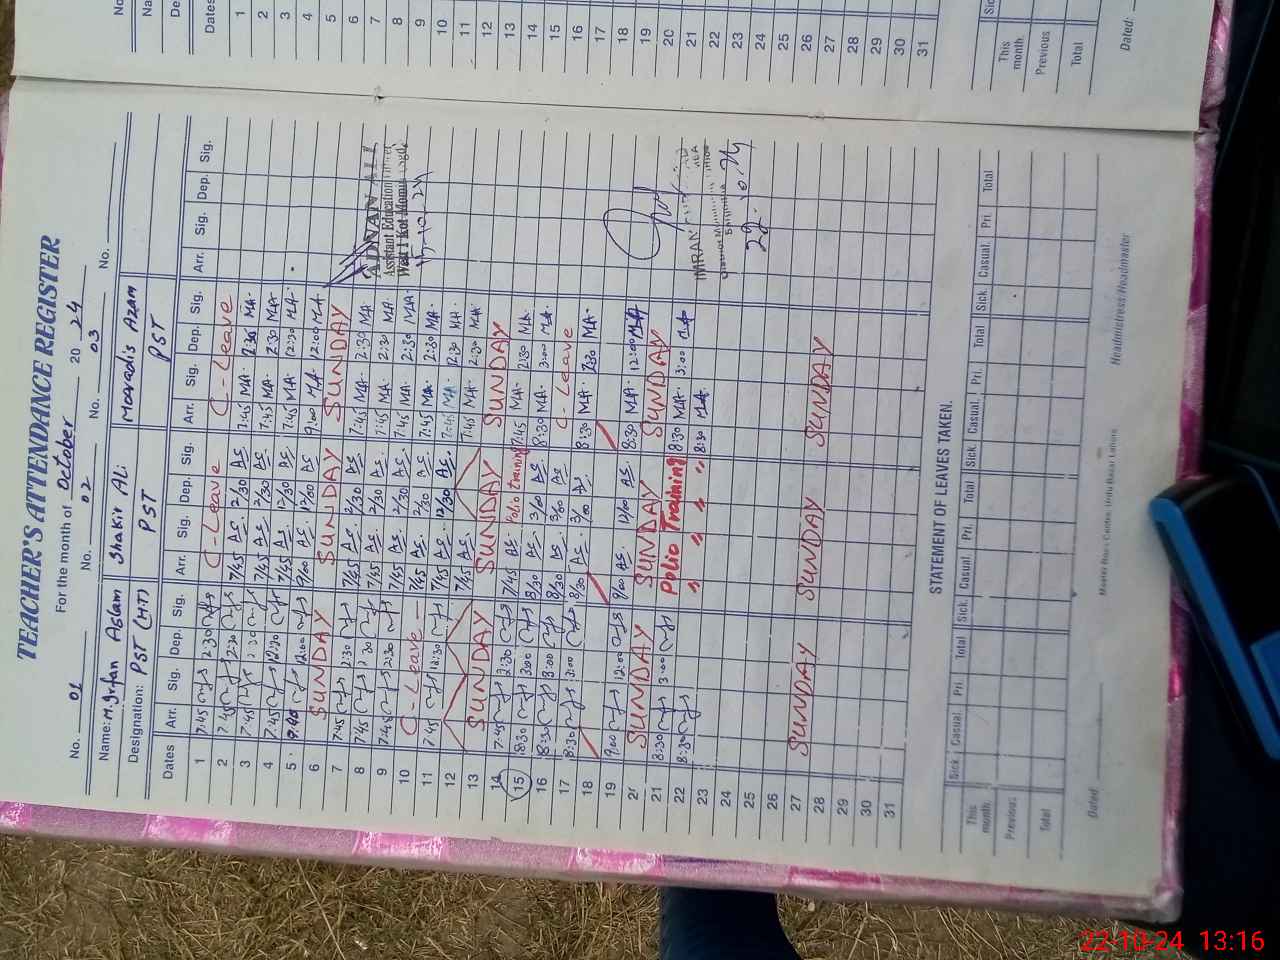 TEACHER'S ATTENDANCE REGISTER
For the month of October 20 24
No. 01 No. 02 No. 03 No.
Name: M. Irfan Aslam Shakir Ali Mevadis Azam
Designation: PST (H.T) PST PST
Dates Arr. Sig. Dep. Sig. Arr. Sig. Dep. Sig. Arr. Sig. Dep. Sig. Arr. Sig. Dep. Sig.
1 7:45 2:30 C-Leave C-Leave
2 7:45 2:30 7/45 AS. 2/30 AS. 7:45 MA. 2:30 MA.
3 7:45 2:30 7/45 AS. 2/30 AS. 7:45 MA. 2:30 MA.
4 7:45 12:30 7/45 AS. 12/30 AS. 7:45 MA. 12:30 MA.
5 9:00 12:00 9/00 AS. 12/00 AS. 9:00 MA. 12:00 MA.
6 SUNDAY SUNDAY SUNDAY
7 7:45 2:30 7/45 AS. 2/30 AS. 7:45 MA. 2:30 MA.
8 7:45 2:30 7/45 AS. 2/30 AS. 7:45 MA. 2:30 MA.
9 7:45 2:30 7/45 AS. 2/30 AS. 7:45 MA. 2:30 MA.
10 C-Leave 7/45 AS. 2/30 AS. 7:45 MA. 2:30 MA.
11 7:45 12:30 7/45 AS. 12/30 AS. 7:45 MA. 12:30 MA.
12 7/45 AS. 7:45 MA. 2:30 MA.
13 SUNDAY SUNDAY SUNDAY
14 7:45 2:30 7/45 AS. Polio training 7:45 MA. 2:30 MA.
15 8:30 3:00 8/30 AS. 3/00 AS. 8:30 MA. 3:00 MA.
16 8:30 3:00 8/30 AS. 3/00 AS. C-Leave
17 8:30 3:00 8/30 AS. 3/00 AS. 8:30 MA. 2:30 MA.
18
19 9:00 12:00 9/00 AS. 12/00 AS. 8:30 MA. 12:00 MA.
20 SUNDAY SUNDAY SUNDAY
21 8:30 3:00 Polio Training 8:30 MA. 3:00 MA.
22 8:30 " " " " 8:30 MA.
23
24
25
26
27 SUNDAY SUNDAY SUNDAY
28
29
30
31
ADNAN ALI
Assistant Education Officer
West 1 Kot Momin
IMRAN
22.10.24
STATEMENT OF LEAVES TAKEN.
Sick Casual. Pri. Total Sick. Casual. Pri. Total Sick. Casual. Pri. Total Sick Casual. Pri. Total
This month.
Previous
Total
Dated:
Headmistress/Headmaster
Urdu Bazar Lahore
No.
Dates
1
2
3
4
5
6
7
8
9
10
11
12
13
14
15
16
17
18
19
20
21
22
23
24
25
26
27
28
29
30
31
Sick
This month
Previous
Total
Dated:
22-10-24 13:16